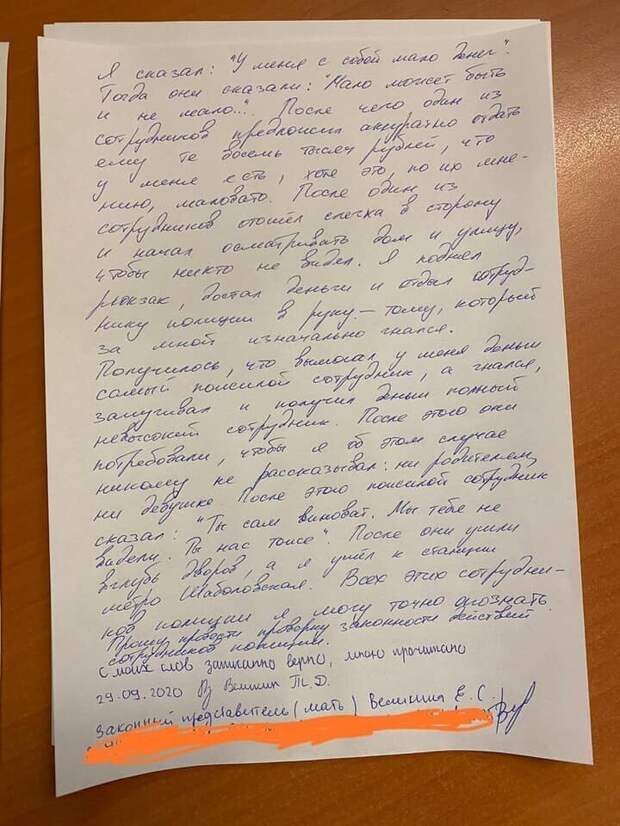 Я сказал: "У меня с собой мало денег".
Тогда они сказали: "Мало может быть
и не мало...". После чего один из
сотрудников предложил аккуратно отдать
ему те восемь тысяч рублей, что
у меня есть, хотя это, по их мне-
нию, маловато. После один из
сотрудников отошёл слегка в сторону
и начал осматривать дом и улицу,
чтобы никто не видел. Я поднял
рюкзак, достал деньги и отдал сотруд-
нику полиции в руку — тому, который
за мной изначально гнался.
Получилось, что вымогал у меня деньги
самый пожилой сотрудник, а гнался,
запугивал и получил деньги полный
невысокий сотрудник. После этого они
потребовали, чтобы я об этом случае
никому не рассказывал: ни родителям,
ни девушке. После этого пожилой сотрудник
сказал: "Ты сам виноват. Мы тебе не
видели. Ты нас тоже". После они ушли
вглубь дворов, а я ушёл к станции
метро Шаболовская. Всех этих сотрудни-
ков полиции я могу точно опознать.
Прошу провести проверку законности действий
сотрудников полиции.
С моих слов записанно верно, мною прочитано
29.09.2020 Т.Д.
Законный представитель (мать) Е.С.